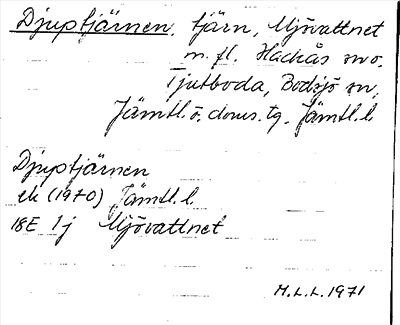 Djuptjärnen, tjärn, Mjövattnet
m. fl. Hackås sn o.
Tjutboda, Bodsjö sn,
Jämtl. ö. doms. tg. Jämtl. l
Djuptjärnen
ek (1970) Jämtl. l.
18E 1j Mjövattnet
M.L.L. 1971